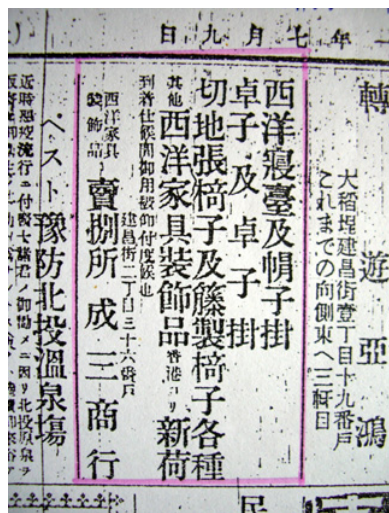 年七月九日
轉
遊亞鴻
大稻埕建昌街壹丁目十九番戶
これまでの向側東へ三軒目
西洋寢臺及帽子掛
卓子及卓子掛
切地張椅子及籐製椅子各種
其他西洋家具裝飾品香港ヨリ新荷
到着仕候間御用被仰付度候也
建昌街二丁目三十六番戶
西洋家具
裝飾品
賣捌所成三商行
ペスト豫防北投溫泉場
近時惡疫流行ニ付
民